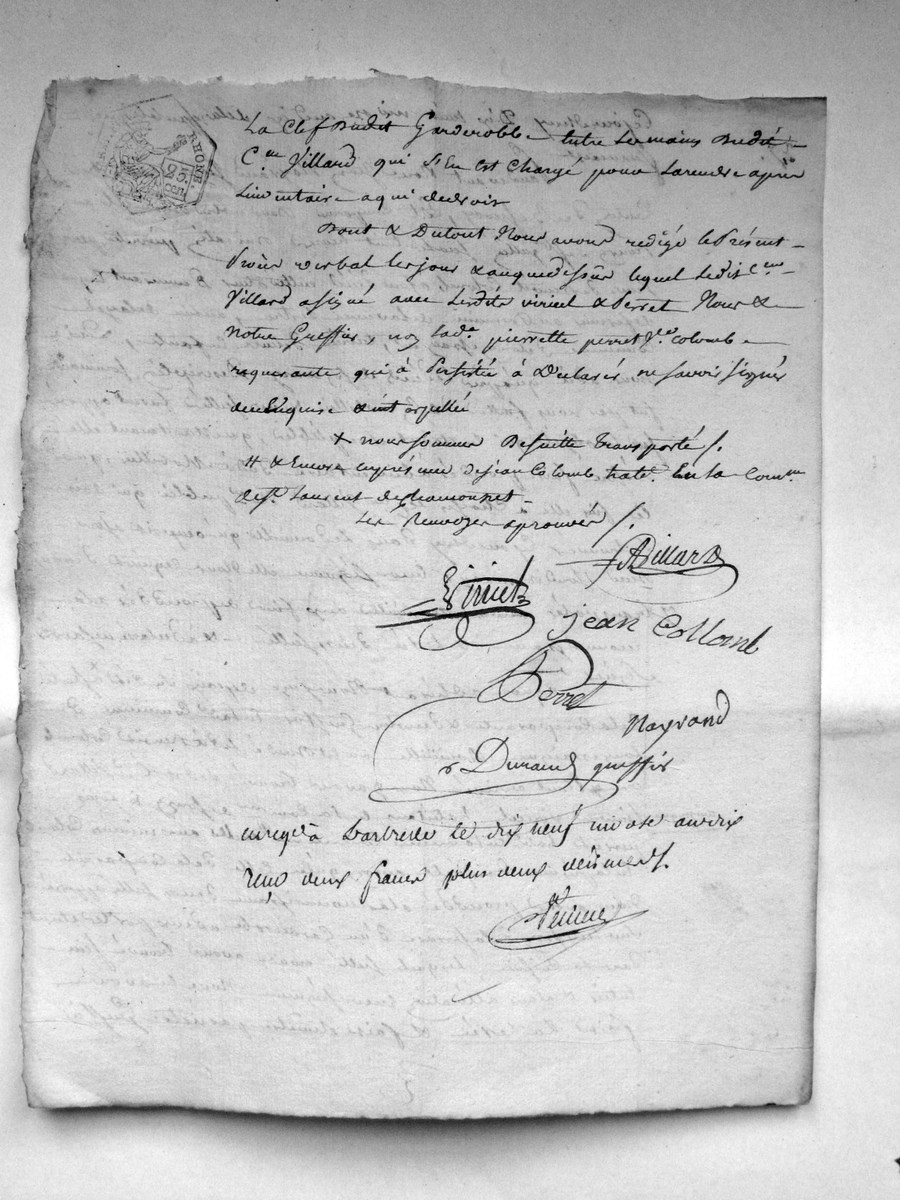 RHONE.
La Clef Dudit Garderobbe entre Les mains Dudit
C.en Villard qui S'En Est Chargé pour Larendre après
Linventaire a qui dedroit
Dont & Dutout Nous avons redigé le Présent
Procès verbal les jour & an que dessus lequel Ledit C.en
Villard a signé avec Lesdits viricel & Perret Nous &
Notre Greffier, non lad.e pierrette perret v.e Colomb
requerante qui à Persisté à Déclarer ne savoir signer
de ce Enquise & interpellée
+ nous sommes De suitte transporté /.
# & Encore en présence de jean Colomb En la Comm.ne
de S.t Laurent de chamousset
Les Renvoyés aprouvés /.
Villard
Viricel
jean Collomb
Perret
Nayrand
Durand greffier
enreg.é à Larbresle Le dix neuf nivose an dix
reçu deux francs plus deux décimes /.